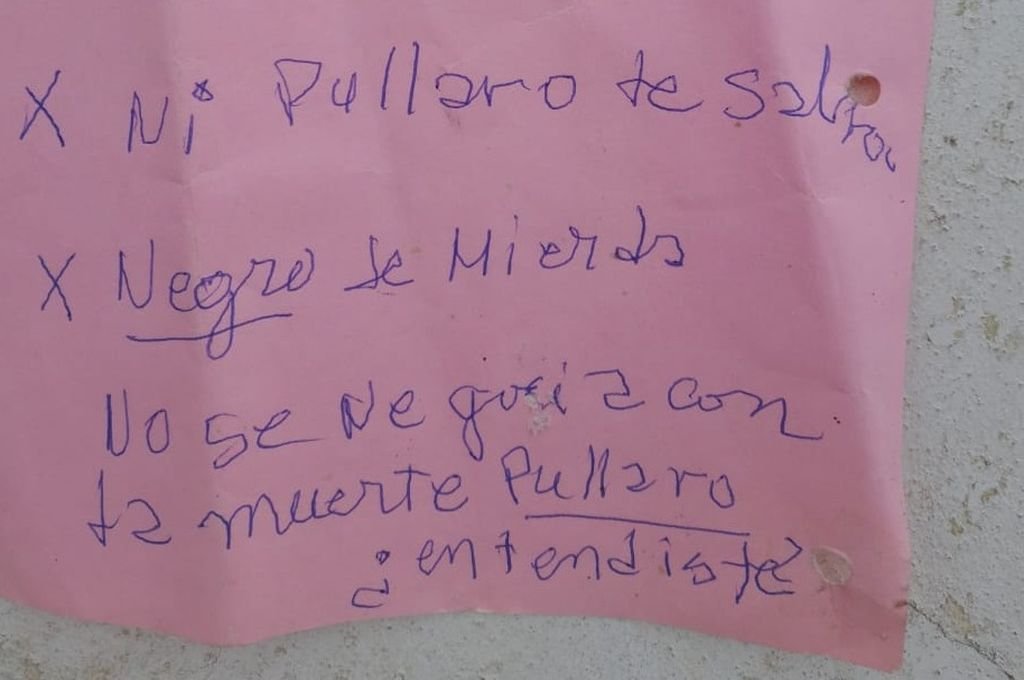 X Ni Pullaro te Salva
X Negro de Mierda
No se Negocia con
la muerte Pullaro
¿entendiste?